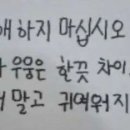 하지 마십시오
우웅은 한끗 차이
말고 귀여워지